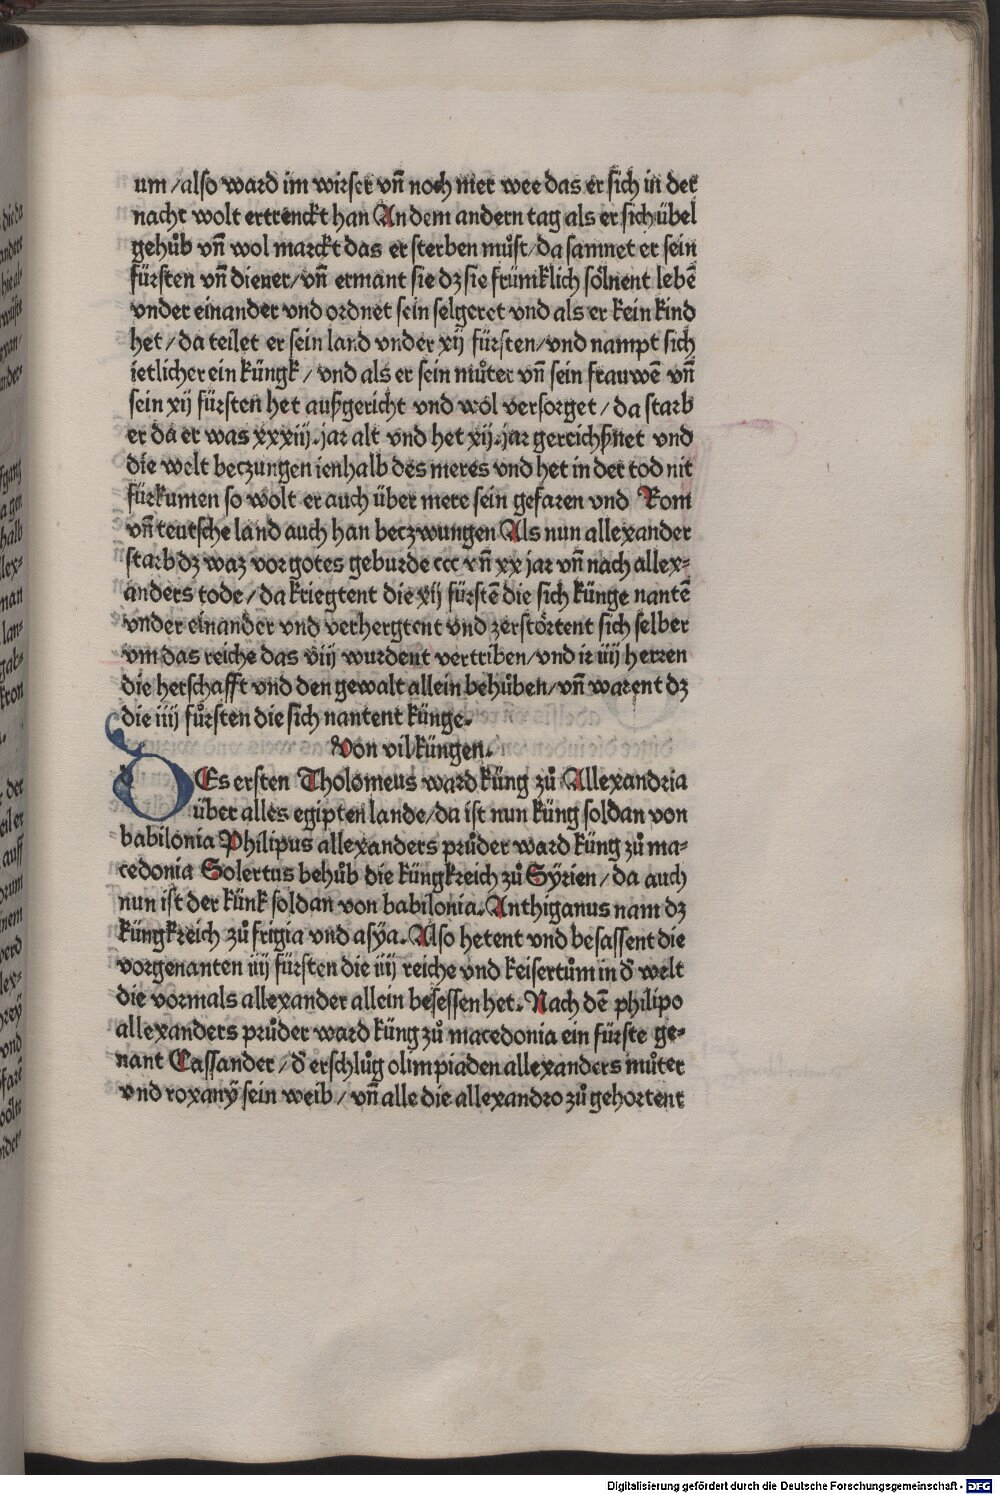 um/also ward im wirser vn̄ noch mer wee das er sich in der
nacht wolt ertrenckt han An dem andern tag als er sich übel
gehůb vn̄ wol marckt das er sterben můst/da samnet er sein
fürsten vn̄ diener/vn̄ ermant sie dz sie frümklich sölnent lebē
vnder einander vnd ordnet sein selgeret vnd als er kein kind
het/da teilet er sein land vnder xij fürsten/vnd nampt sich
ietlicher ein küngk/vnd als er sein můter vn̄ sein frauwē vn̄
sein xij fürsten het außgericht vnd wol versorget/da starb
er da er was xxxiij.jar alt vnd het xij.jar gereichßnet vnd
die welt beczungen ienhalb des meres vnd het in der tod nit
fürkumen so wolt er auch über mere sein gefaren vnd Rom
vn̄ teutsche land auch han beczwungen Als nun allexander
starb dz waz vor gotes geburde ccc vn̄ xx jar vn̄ nach allex-
anders tode/da kriegtent die xij fürstē die sich künge nantē
vnder einander vnd verhergtent vnd zerstörtent sich selber
vm das reiche das viij wurdent vertriben/vnd ir iiij herren
die herschafft vnd den gewalt allein behüben/vn̄ warent dz
die iiij fůrsten die sich nantent künge.
Von vil küngen.
DEs ersten Tholomeus ward küng zů Allexandria
über alles egipten lande/da ist nun küng soldan von
babilonia Philipus allexanders průder ward küng zů ma-
cedonia Solertus behůb die küngkreich zů Syrien/da auch
nun ist der künk soldan von babilonia.Anthiganus nam dz
küngkreich zů frigia vnd asÿa.Also hetent vnd besassent die
vorgenanten iiij fürsten die iiij reiche vnd keisertům in d̄ welt
die vormals allexander allein besessen het.Nach dē philipo
allexanders průder ward küng zů macedonia ein fürste ge-
nant Cassander/d̄ erschlůg olimpiaden allexanders můter
vnd roxanÿ sein weib/vn̄ alle die allexandro zů gehortent
Digitalisierung gefördert durch die Deutsche Forschungsgemeinschaft - DFG